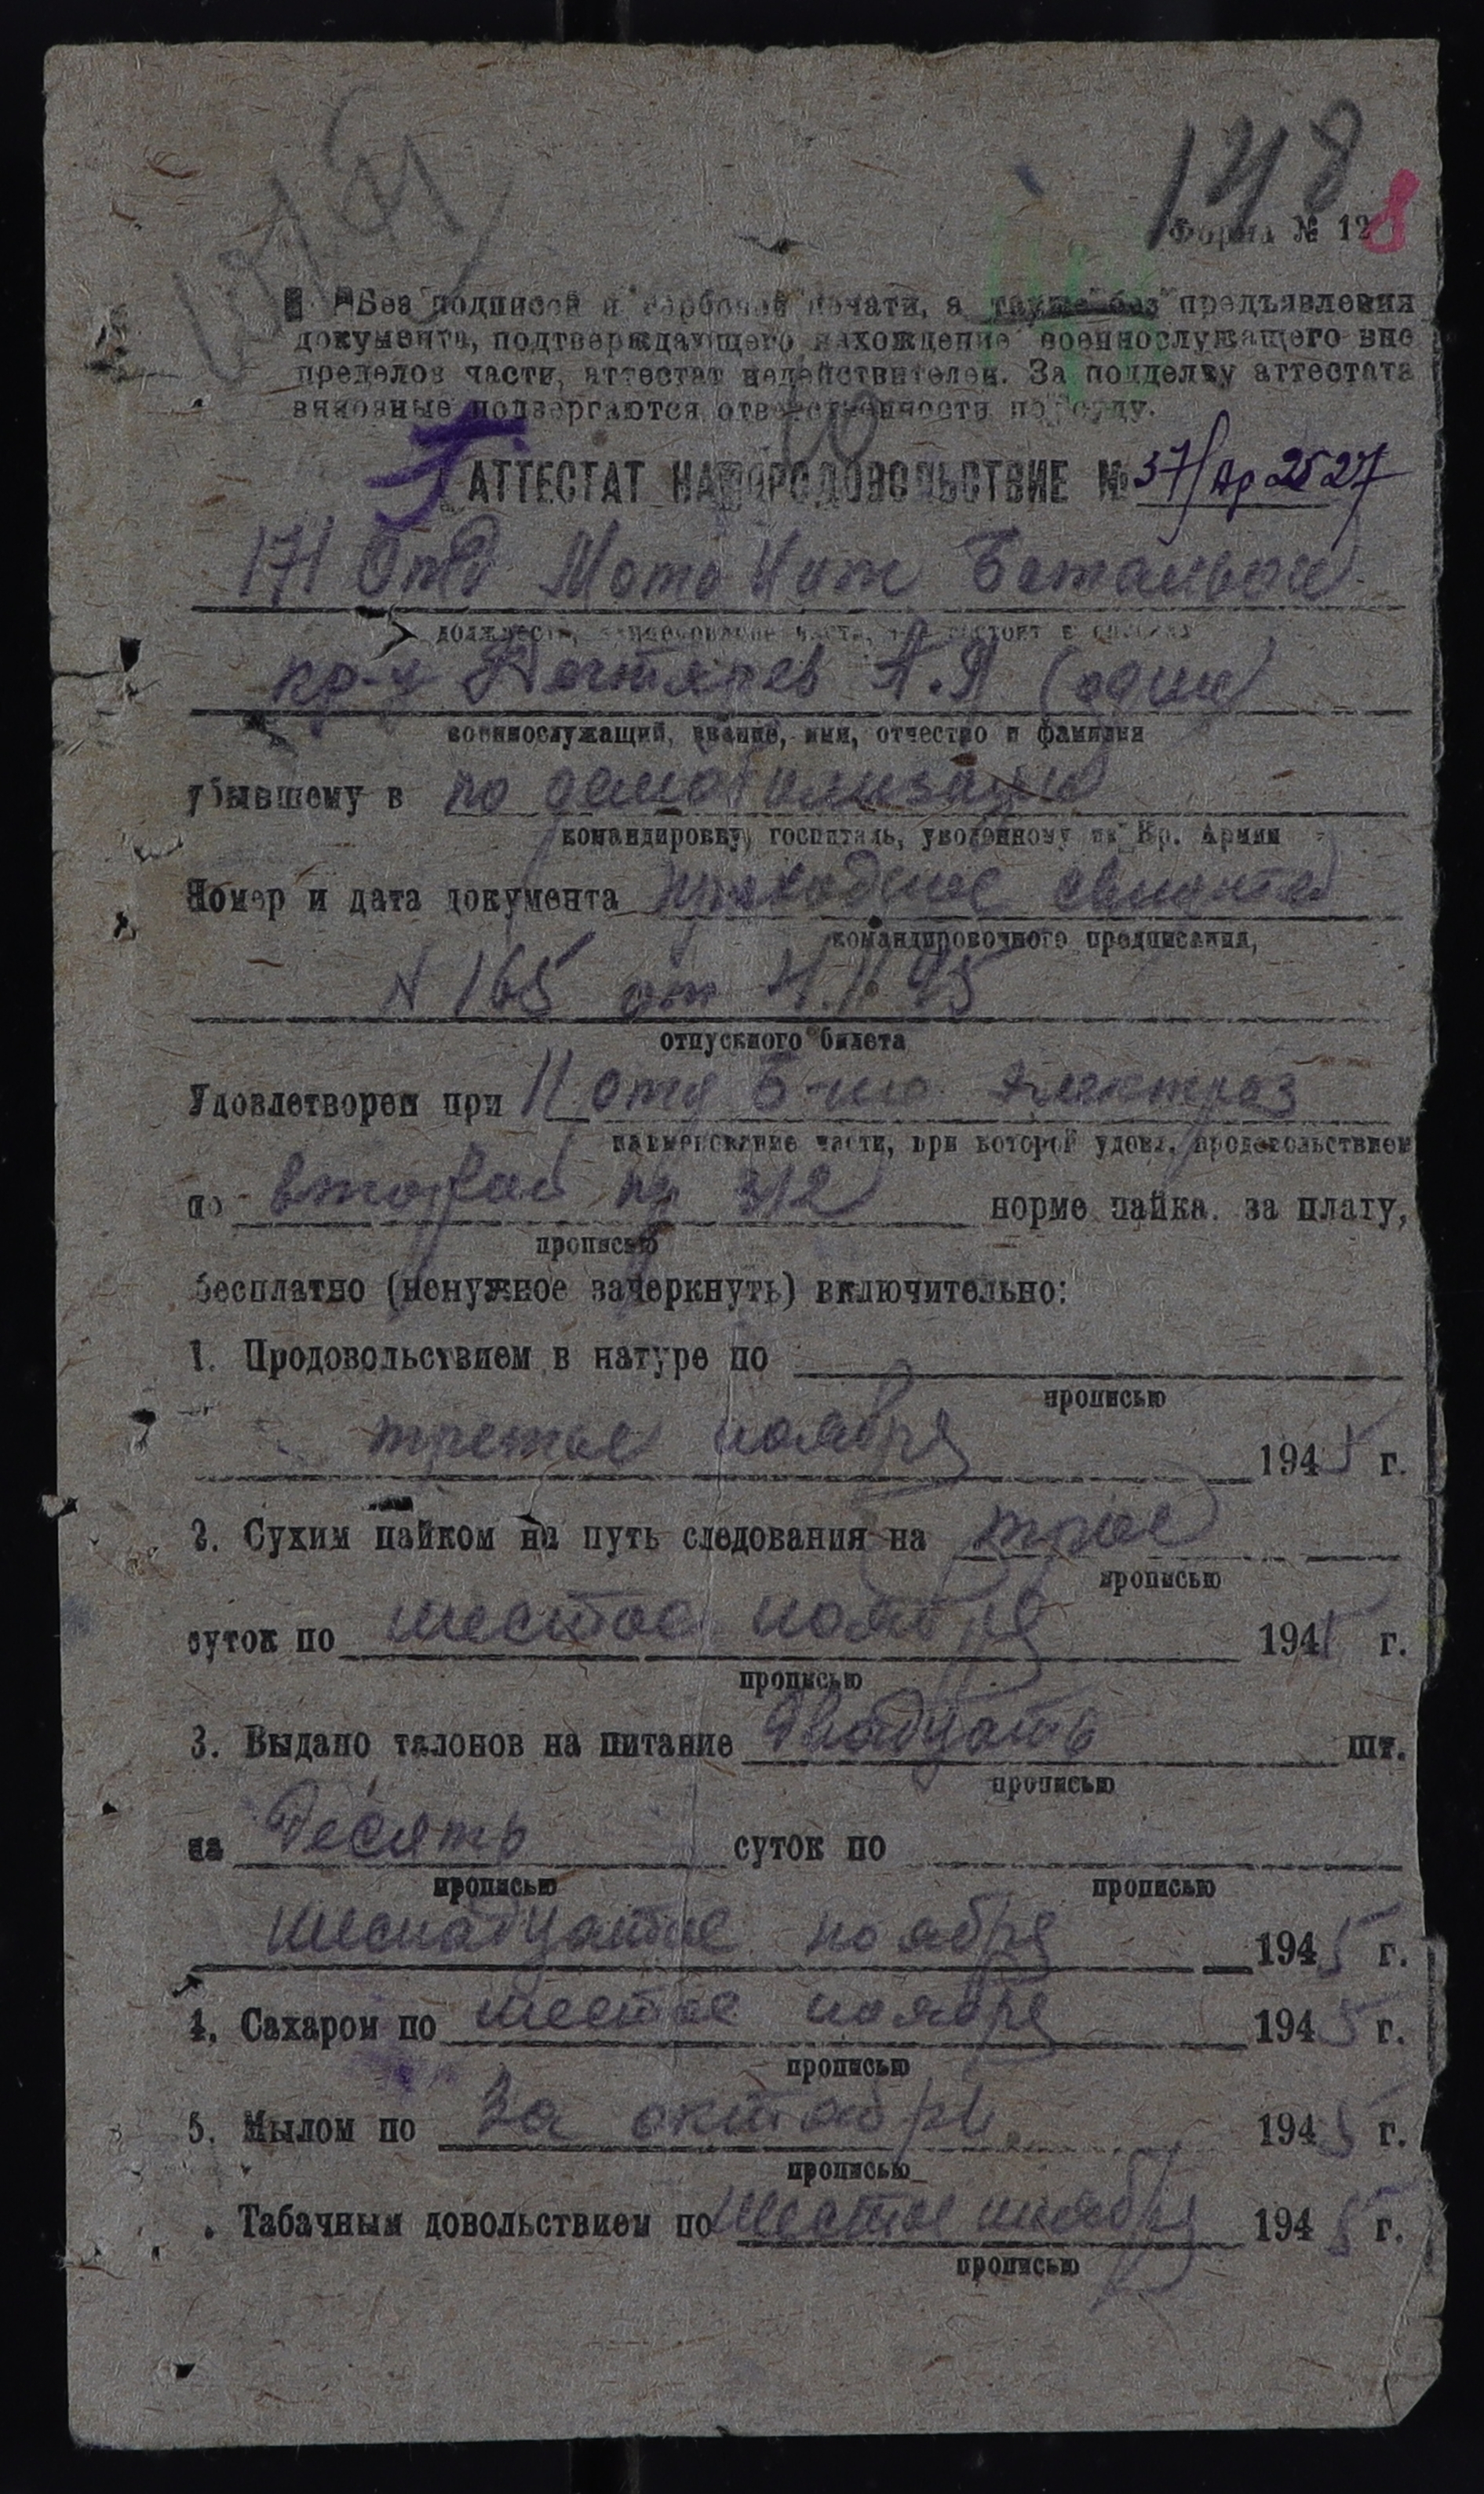 148
Форма № 12
8
Без подписей и гербовой печати, а также без предъявления
документа, подтверждающего нахождение военнослужащего вне
пределов части, аттестат недействителен. За подделку аттестата
виновные подвергаются ответственности по суду.
АТТЕСТАТ НА ПРОДОВОЛЬСТВИЕ № 37/ 2527
171 Отд Мото Инж Батальон
должность, наименование части, где состоит в списках
кр-ц Дегтярев А.Я (один)
военнослужащий, звание, имя, отчество и фамилия
убывшему в по демобилизации
командировку, госпиталь, уволенному из Кр. Армии
Номер и дата документа проходное свидетел
командировочного предписания,
N 165 от 4.11.45
отпускного билета
Удовлетворен при 11 отд Б-но электроз
наименование части, при которой удовл. продовольствием
по второй пр 312 норме пайка за плату,
прописью
бесплатно (ненужное зачеркнуть) включительно:
1. Продовольствием в натуре по
прописью
третье ноября 1945 г.
2. Сухим пайком на путь следования на трое
прописью
суток по шестое ноября 1945 г.
прописью
3. Выдано талонов на питание Двадцать шт.
прописью
на Десять суток по
прописью прописью
шеснадцатое ноября 1945 г.
4. Сахаром по шестое ноября 1945 г.
прописью
5. Мылом по За октябрь 1945 г.
прописью
. Табачным довольствием по шестое ноября 1945 г.
прописью